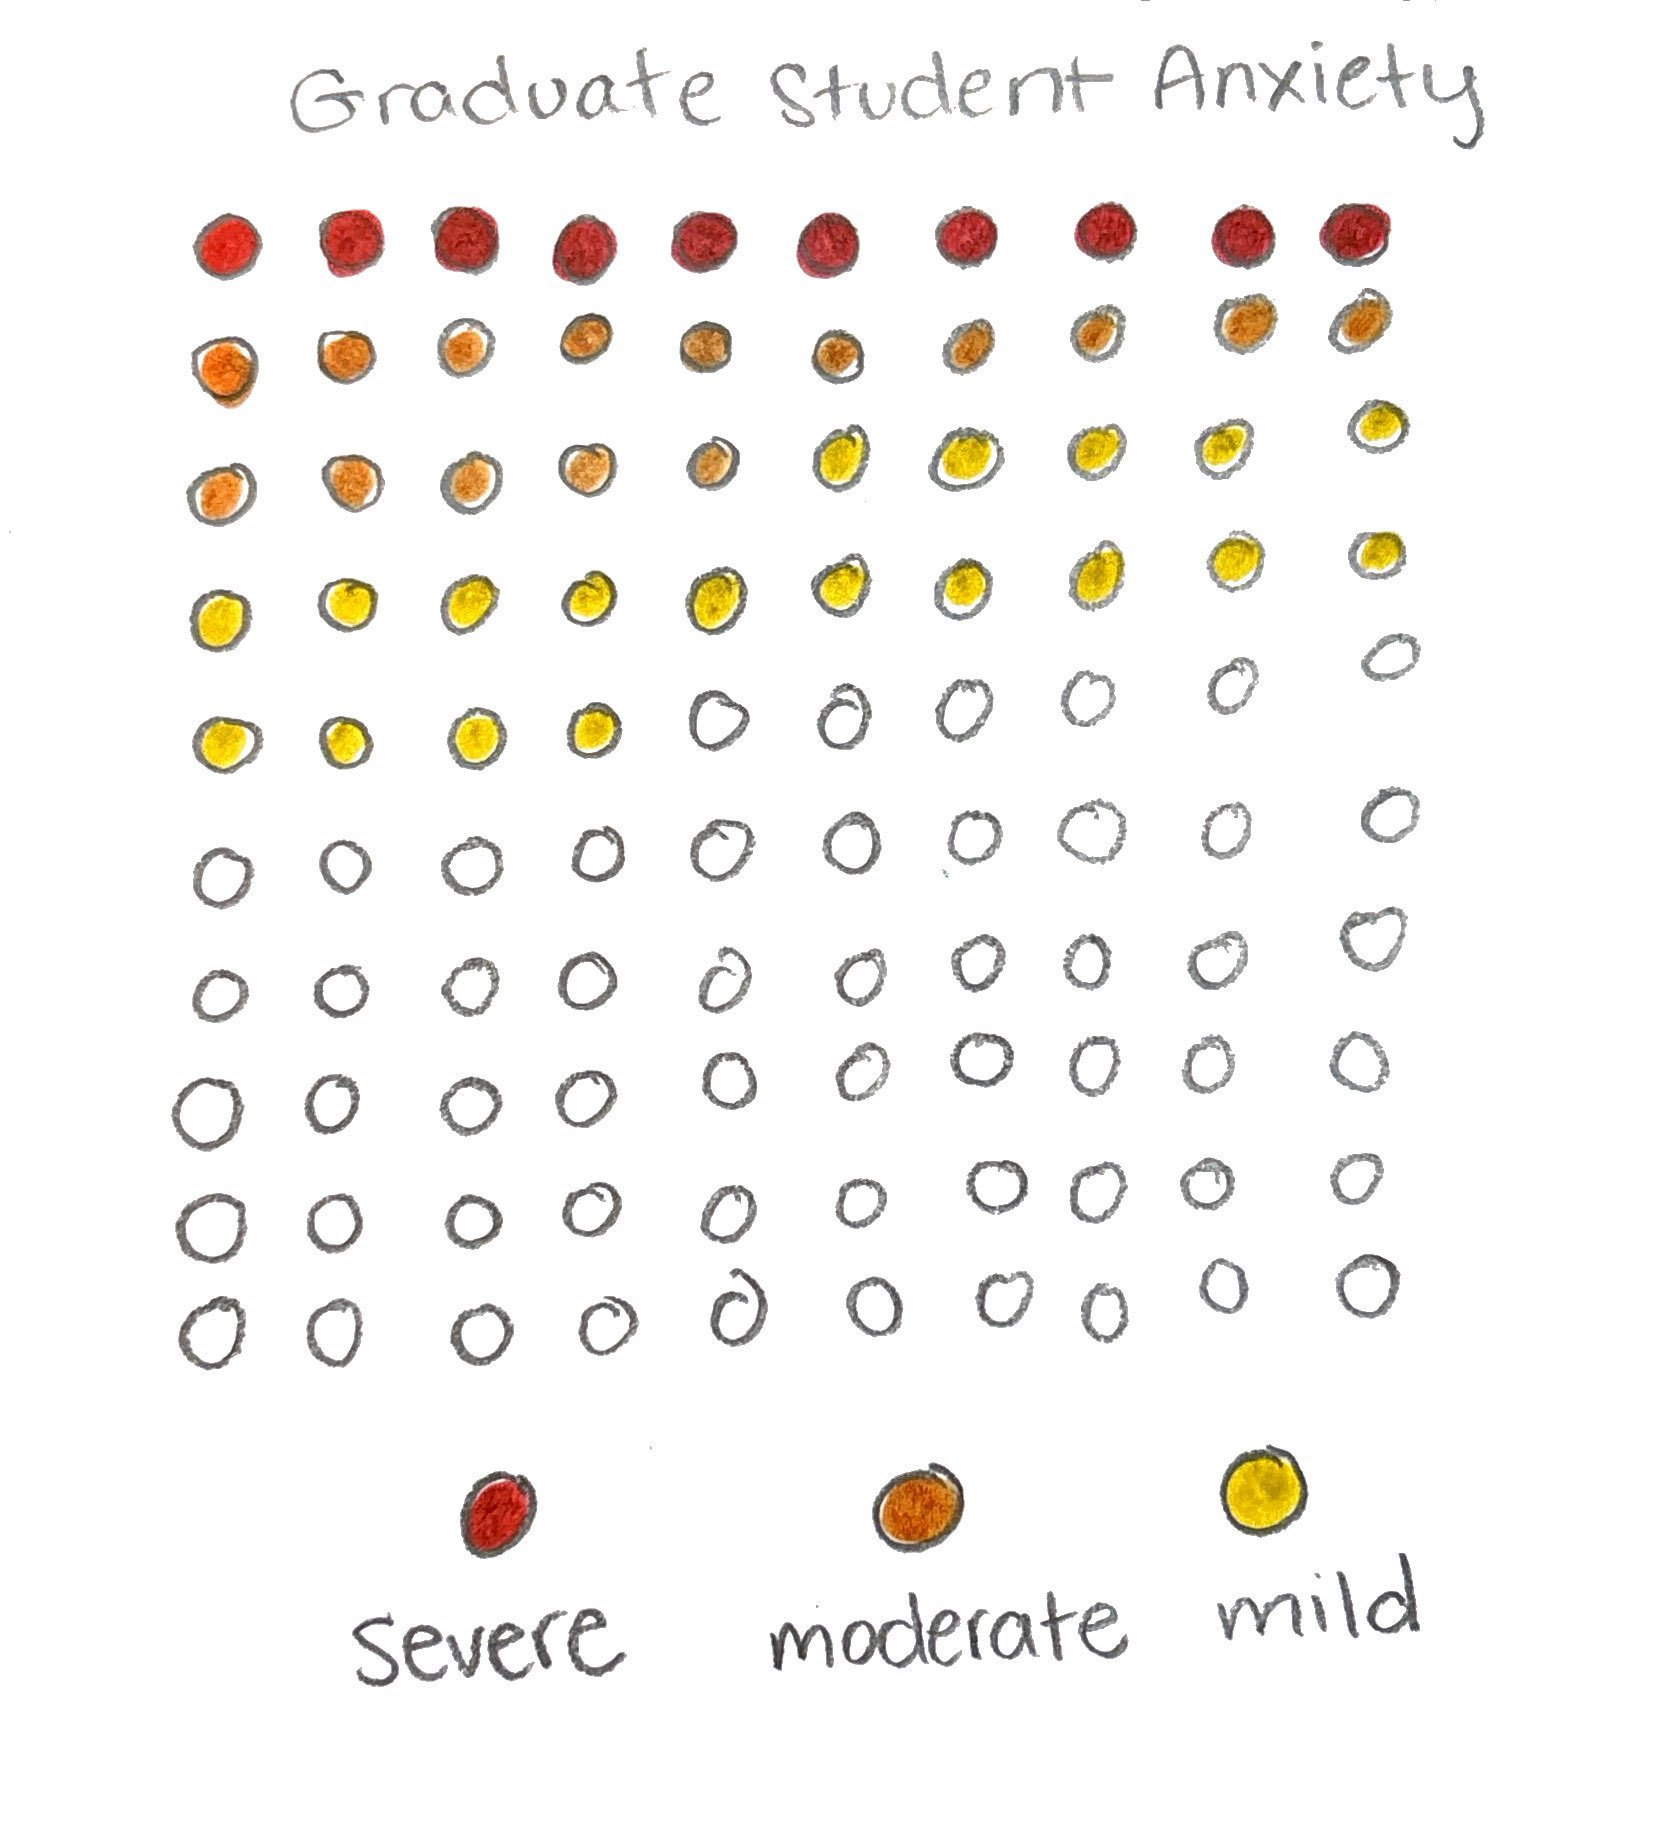 Graduate Student Anxiety
severe moderate mild